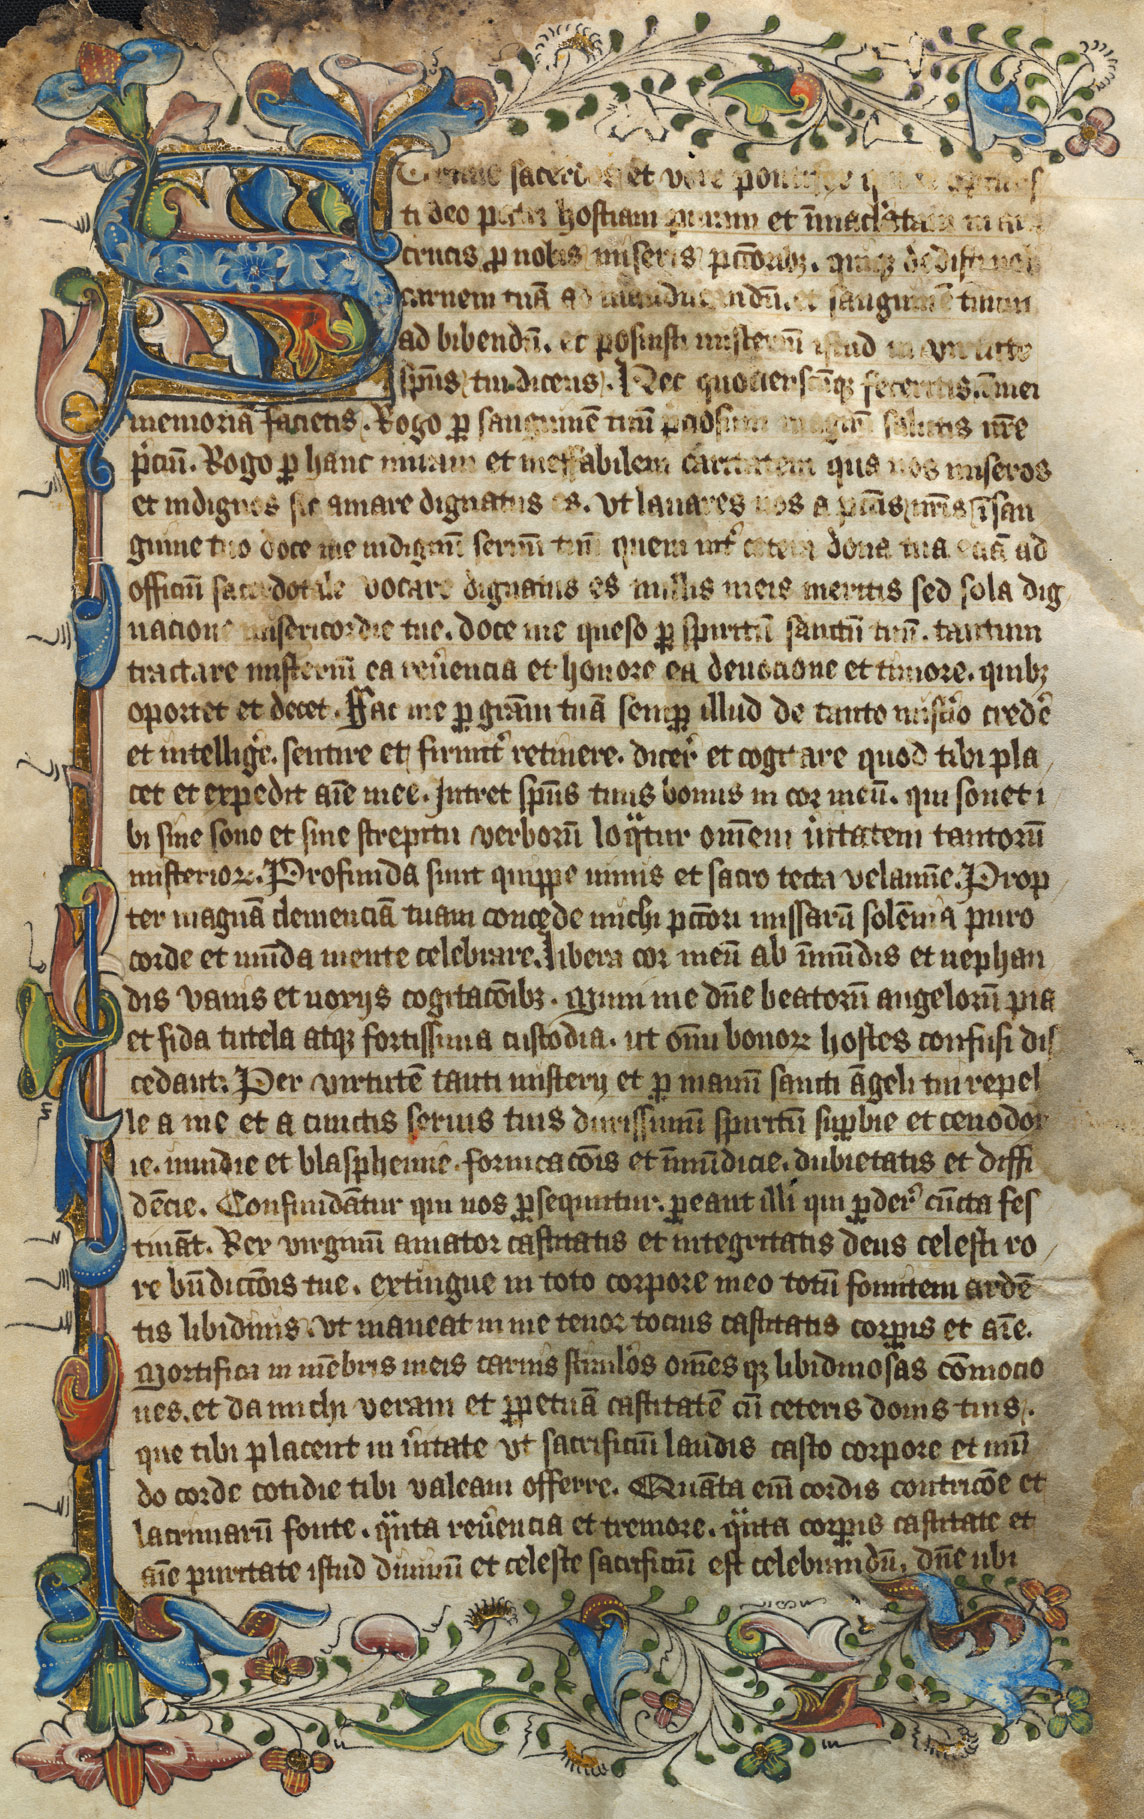 Summe sacerdos et vere pontifex qui te optulis
ti deo patri hostiam puram et īmaculatam in ara
crucis ꝑ nobis miseris pc̄toribꝫ. quiqꝫ dedisti nobis
carnem tuā ad manducandū. et sanguinē tuum
ad bibendū. et posuisti misteriū istud in virtute
sp̄us tui. dicens. Hec quociensc̄uqꝫ feceritis. ī mei
memoriā facietis. Rogo ꝑ sanguinē tuū p̄ciosum magnū salutis nr̄e
p̄ciū. Rogo ꝑ hanc miram et ineffabilem caritatem qua nos miseros
et indignos sic amare dignatus es. vt lauares nos a pcc̄is nr̄is ī san
guine tuo doce me indignū seruū tuū quem int̉ cetera dona tua eciā ad
officiū sacerdotale vocare dignatus es nullis meis meritis sed sola dig
nacione misericordie tue. doce me queso ꝑ spiritū sanctū tuū. tantum
tractare misteriū ea reu̾encia et honore ea deuocione et timore. quibꝫ
oportet et decet. Fac me ꝑ grām tuā semꝑ illud de tanto mist̉io cred̉e
et intellig̉e. sentire et firmit̉ retinere. dicer̉ et cogitare quod tibi pla
cet et expedit aīe mee. Intret sp̄us tuus bonus in cor meū. qui sonet i
bi sine sono et sine strepitu verborū loqᷓtur om̄em u̾itatem tantorū
misterioꝝ. Profunda sunt quippe nimis et sacro tecta velamīe. Prop
ter magnā clemenciā tuam concede michi pc̄tori missarū solēnia puro
corde et mūda mente celebrare. Libera cor meū ab īmūdis et nephan
dis vanis et noxijs cogitac̄oibꝫ. Muni me dn̄e beatorū angelorū pia
et fida tutela atqꝫ fortissima custodia. ut om̄i bonoꝝ hostes confusi dis
cedant. Per virtutē tanti misterij et ꝑ manū sancti āgeli tui repel
le a me et a cunctis seruis tuis durissimū spiritū suꝑbie et cenodox
ie. inuidie et blasphemie. fornicac̄ois et īmūdicie. dubietatis et diffi
dēcie. Confundātur qui nos ꝑsequntur. ꝑeant illi qui ꝑder̉ cūcta fes
tināt. Rex virginū amator castitatis et integritatis deus celesti ro
re bn̄dictōis tue. extingue in toto corpore meo totū fomitem ardē
tis libidinis. vt maneat in me tenor tocius castitatis corꝑis et aīe.
Mortifica in mēbris meis carnis stimulos om̄esqꝫ libidinosas cōmocio
nes. et da michi veram et ꝑpetuā castitatē cū ceteris donis tuis.
que tibi placent in u̾itate vt sacrificiū laudis casto corpore et mū
do corde cotidie tibi valeam offerre. Quāta em̄ cordis contricōe et
lacrimarū fonte. qᷓnta reu̾encia et tremore. qᷓnta corꝑis castitate et
aīe puritate istud diuinū et celeste sacrificiū est celebrandū. dn̄e ubi